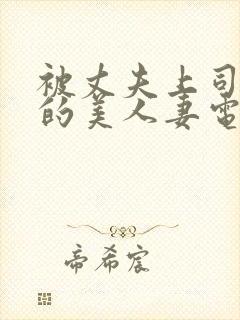 被丈夫上司
的美人妻电
帝希宸